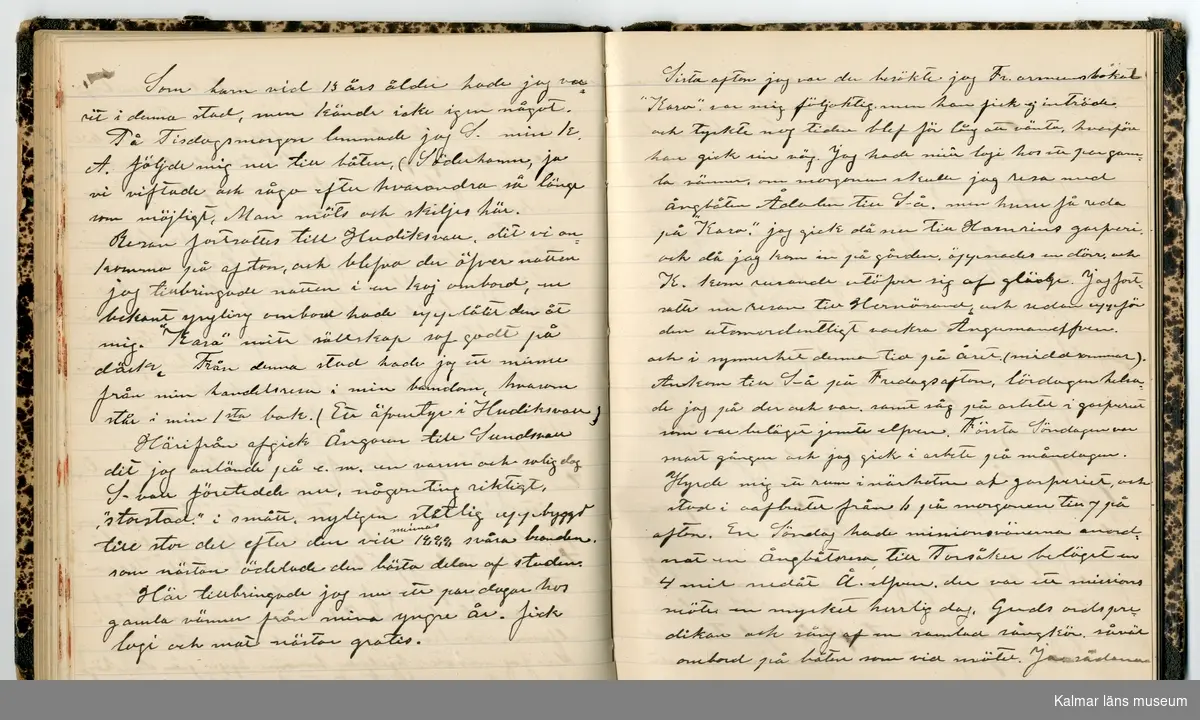 Som barn vid 13 års ålder hade jag va=
rit i denna stad, men kände icke igen något.
På Tisdagsmorgon lemnade jag S. min K.
A. följde mig ner till båten, (Söderhamn, ja
vi viftade och sågo efter hvarandra så länge
som möjligt. Man möts och skiljes här.
Resan fortsattes till Hudiksvall, dit vi an-
kommo på afton, och blefvo der öfver natten
jag tillbringade natten i en koj ombord, en
bekant yngling ombord hade upplåtit den åt
mig. "Karo" mitt sällskap sof godt på
däck. Från denna stad hade jag ett minne
från min handelsresa i min barndom, hvarom
står i min 1sta bok. (Ett äfventyr i Hudiksvall)
Härifrån afgick Ångaren till Sundsvall
dit jag anlände på e. m. en varm och solig dag
S-vall företedde nu, någonting riktigt,
"storstad." i smått, nyligen ståtlig uppbyggd
till stor del efter den vid midsommar 1888 svåra branden.
som nästan ödelade den bästa delen af staden.
Här tillbringade jag nu ett par dagar hos
gamla vänner från mina yngre år. fick
logi och mat nästan gratis.
Sista afton jag var der besökte jag Fr. armens lokal
"Karo" var mig följaktig, men han fick ej inträde
och tyckte nog tiden blef för lång att vänta, hvarför
han gick sin väg. Jag hade mitt logi hos ett par gam-
la vänner, om morgonen skulle jag resa med
ångbåten Ådalen till S-å. men hur få reda
på "Karo", jag gick då ner till Hamrins garferi,
och då jag kom in på gården, öppnades en dörr, och
K. kom rusande utöfver sig af glädje. Jag fort
satte nu resan till Hernösand, och sedan uppför
den utomordentligt vackra Ångermanelfven.
och i synnerhet denna tid på året (midsommar).
Ankom till S-å på Fredagsafton, lördagen helsa
de jag på der och var, samt såg på arbetet i garferiet
som var beläget jemte elfven. Första Söndagen var
snart gången och jag gick i arbete på måndagen.
Hyrde mig ett rum i närheten af garferiet, och
stod i arbete från 6 på morgonen till 7 på
afton. En Söndag hade missionsvännerna anord-
nat en Ångbåtsresa till Torsåker beläget en
4 mil nedåt Å. elfven. der var ett missions
möte en mycket herrlig dag, Guds ords pre-
dikan och sång af en samlad sångkör. såväl
ombord på båten som vid mötet. Ja sådana
Kalmar läns museum